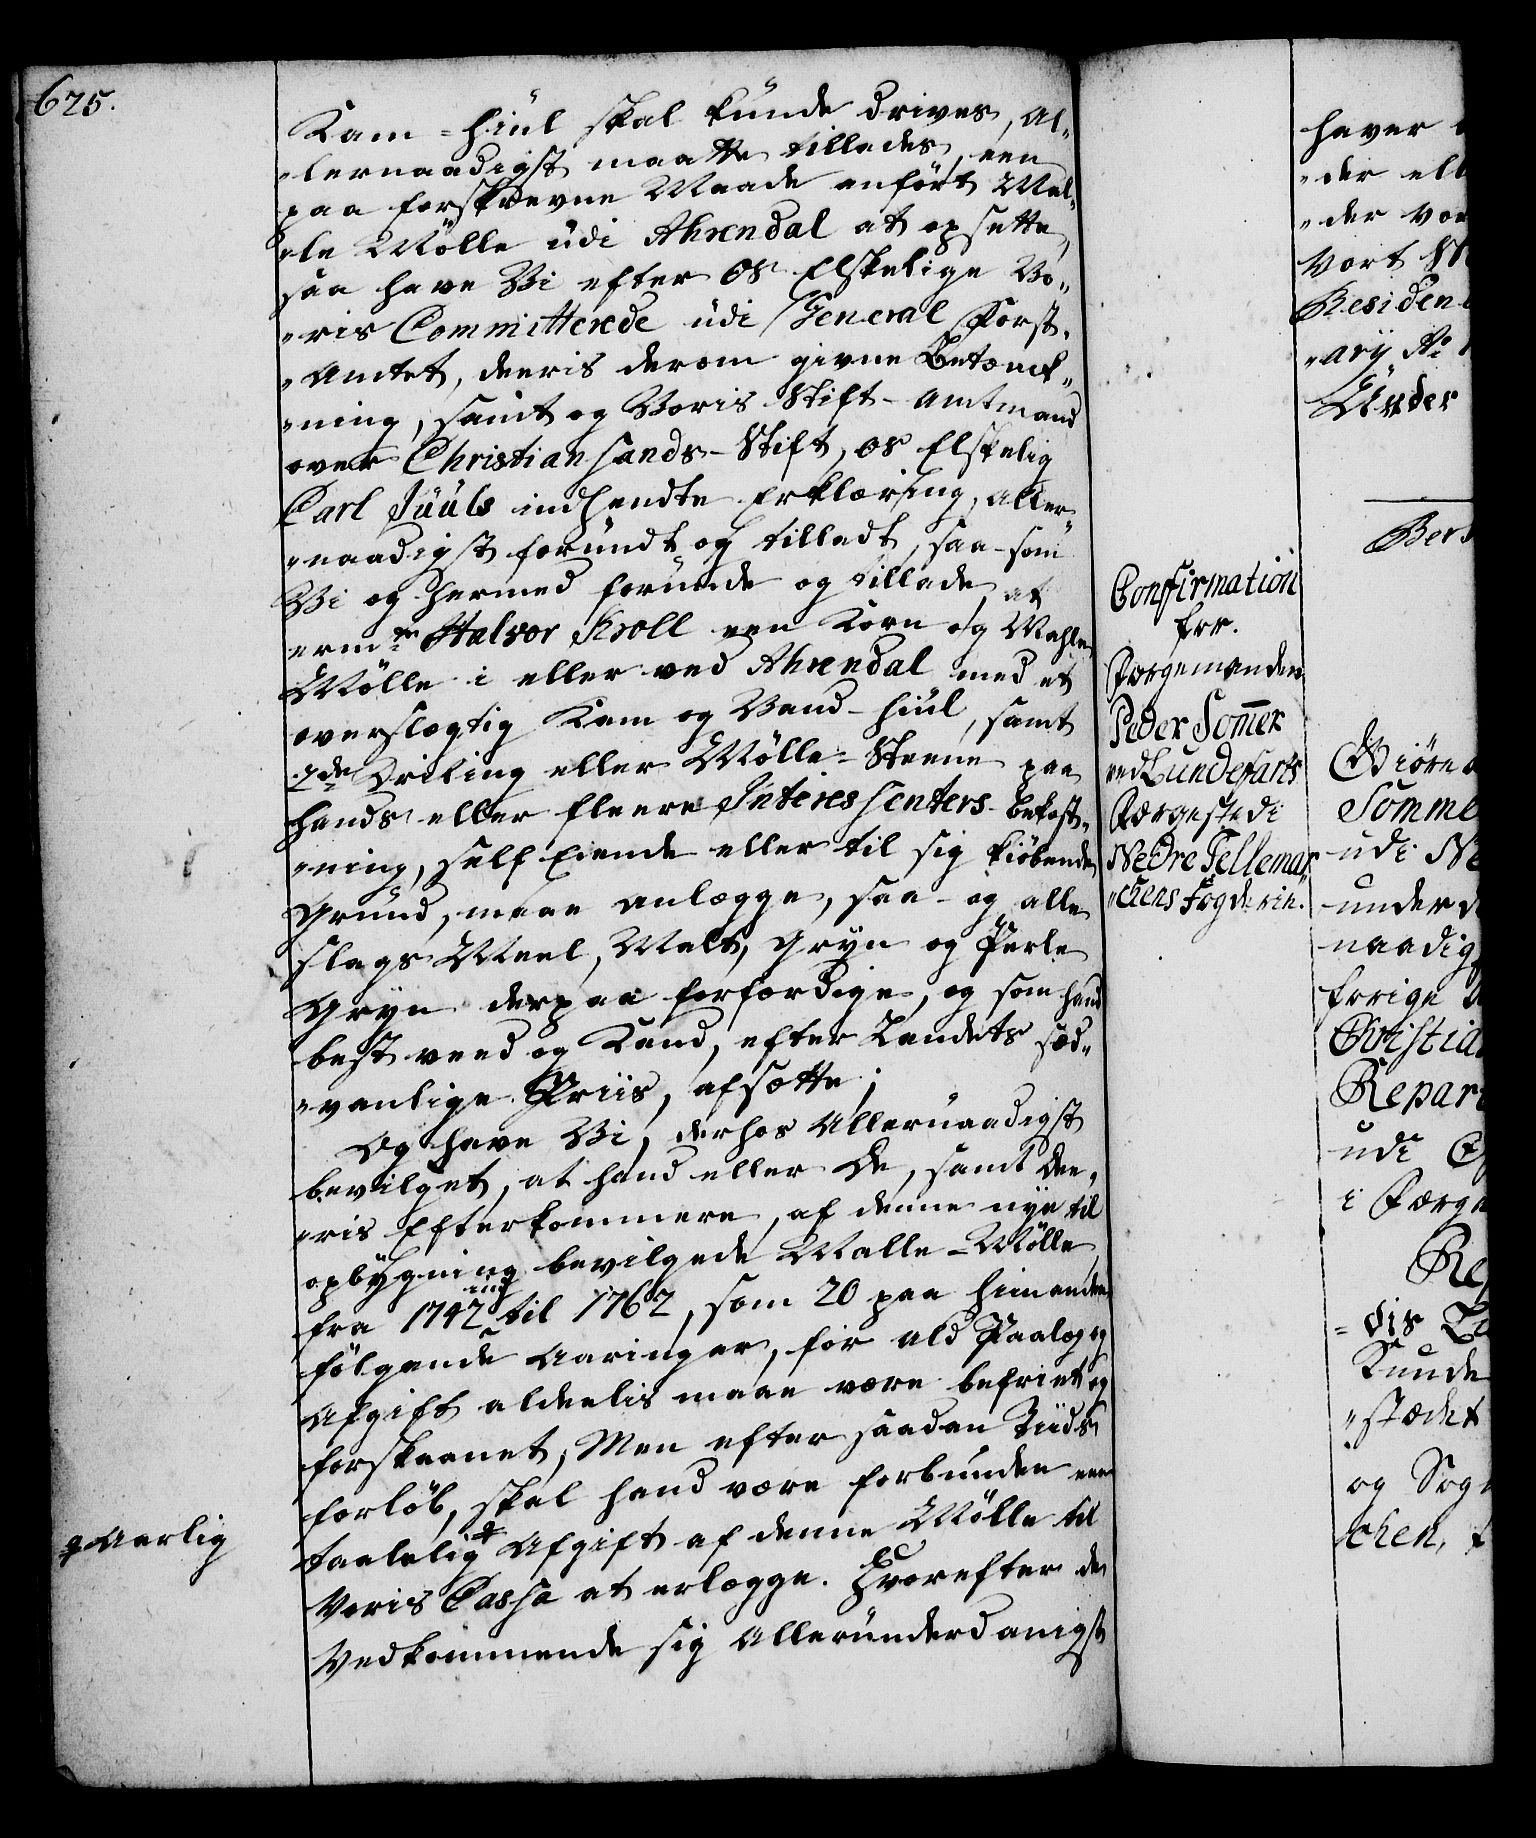 625.
Kam-hiul skal kunde drives, Al-
"lernaadigst maatte tillades, een
paa forskrevne Maade anført Mal-
"le Mølle udi Ahrendal at opsette,
saa have Vi efter OS Elskelige Vo-
"ris Committerede udi General Forst-
"Amtet, deeris derom givne Betænk-
"ning, samt og Voris Stift-Amtmand
over Christiansands-Stift, OS Elskelig
Carl Juuls indhendte Erklæring, Aller-
"naadigst forundt og tilladt, saa-som
Vi og hermed forunde og tillade, at
ermte Halvor Kroll een Korn og Mahle
Mølle i eller ved Ahrendal med et
overslægtig Kam og Vand-hiul, samt
2de Driling eller Mølle-Steene paa
hands eller fleere Interessenters Bekost-
"ning, self Eiende eller til sig kiøbende
Grund, maae anlægge, saa-og alle
slags Meel, Malt, Gryn og Perle
Gryn derpaa forfærdige, og som hand
best veed og Kand, efter Landets sæd-
"vanlige Priis, afsætte;
Og have Vi, derhos Allernaadigst
bevilget, at hand eller De, samt Dee-
"ris Efterkommere, af denne nye til
opbygning bevilgede Malle-Mølle,
fra 1742 ind til 1762, som 20 paa hinanden
følgende Aaringer, for ald Paalæg og
Afgift aldeelis maae være befriet og
forskaanet; Men efter saadan Tiids
forløb, skal hand være forbunden een
taalelig # Afgift af denne Mølle til
Voris Cassa at erlægge. Hvorefter de
Vedkommende sig Allerunderdanigst
# Aarlig
Confirmation
for.
Færgemanden
Peder Sommer
ved Lundefars
Færgested i
Nedre Tellemar-
"chens Fogderie.
haver
"der ell
"der vor
Vort
Residen
"arij Ao
Under
Giøre
Somme
udi Ne
under
naadig
forige
Christia
Repar
udi
i Færge
Re
Kunde
"stædet
og Sog
chen,